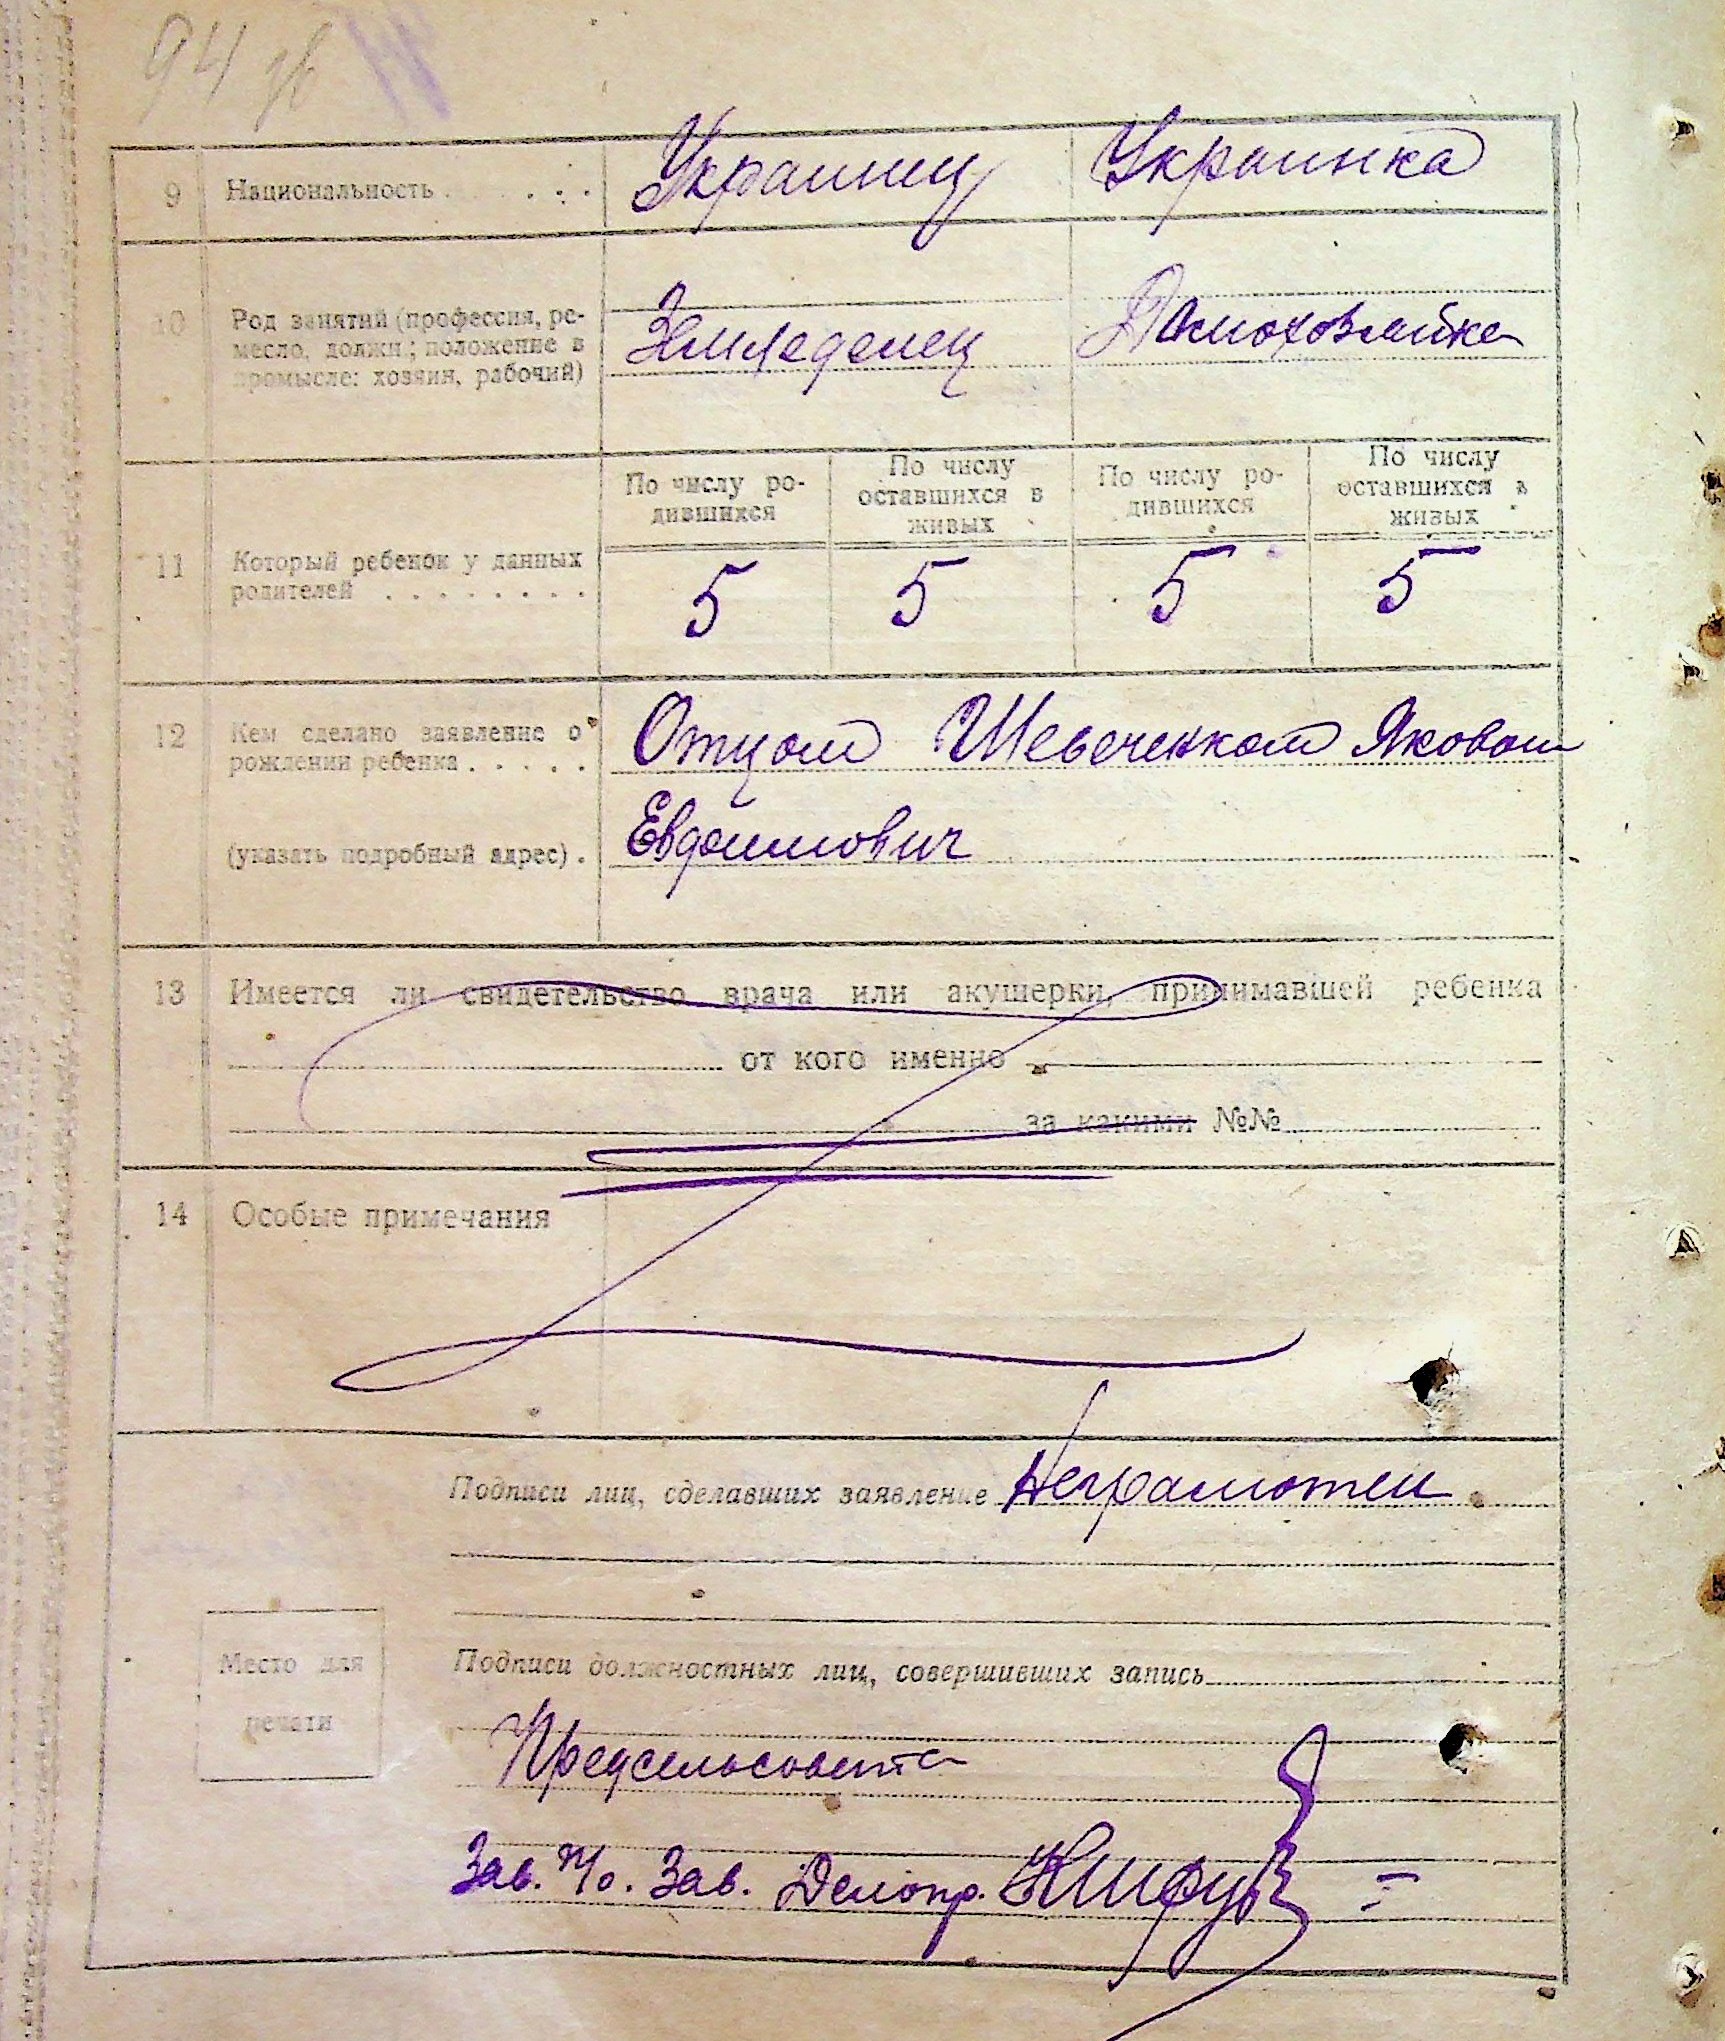 94 зв
9 Национальность . . . . . Украинец Украинка
10 Род занятий (профессия, ре-
месло, должн.; положение в
промысле: хозяин, рабочий)
Земледелец Домохозяйка
По числу ро-
дившихся
По числу
оставшихся в
живых
По числу ро-
дившихся
По числу
оставшихся в
живых
11 Который ребенок у данных
родителей . . . . . . . .
5 5 5 5
12 Кем сделано заявление о
рождении ребенка . . . . .
Отцом Шевченком Яковом
(указать подробный адрес) . Евдокимович
13 Имеется ли свидетельство врача или акушерки, принимавшей ребенка
от кого именно
за какими №№
14 Особые примечания
Подписи лиц, сделавших заявление Неграмотен
Место для
печати
Подписи должностных лиц, совершивших запись
Предсельсовета
Зав. Зав. Делопр.